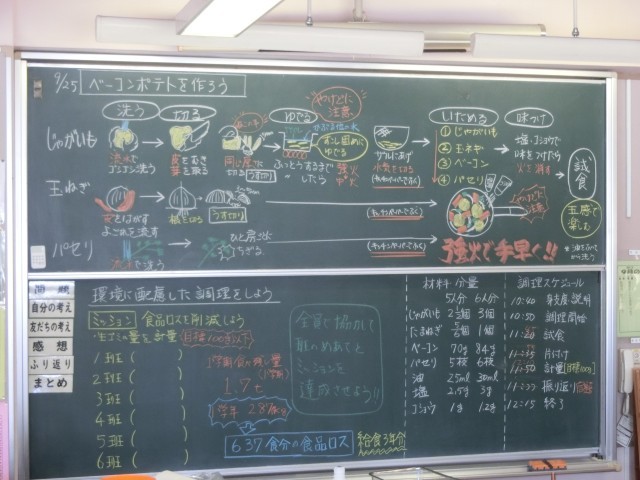 9/25 ベーコンポテトを作ろう
洗う 切る ゆでる やけどに注意 いためる 味つけ
じゃがいも
流水で
ゴシゴシ洗う
皮をむき
芽を取る
同じ厚さに
切る うす切り
少し固めに
ゆでる
ふっとうするまで 強火
〃 したら 中火
ザルにあげ
水気を切る
(キッチンペーパーでふく)
① じゃがいも
② 玉ネギ
③ ベーコン
④ パセリ
塩・コショウで
味をつけたら
火を消す
試食
五感で
楽しむ
玉ねぎ
皮をはがす
よごれを流す
根を切る
うす切り
(キッチンペーパーでふく)
やけどに注意
パセリ
流水で洗う
ひと房ごとに
ちぎる
(キッチンペーパーでふく)
強火で手早く!!
問題
自分の考え
友だちの考え
感想
ふり返り
まとめ
環境に配慮した調理をしよう
ミッション 食品ロスを削減しよう
生ゴミの量を計量 目標100g以下
1班 ( )
2班 ( )
3班 ( )
4班 ( )
5班 ( )
6班 ( )
1学期食べ残し量
1.7t
637食分の食品ロス
給食3年分
全員で協力して
班のめあてと
ミッションを
達成させよう!!
材料 分量
5人分 6人分
じゃがいも 2½個 3個
たまねぎ 1個
ベーコン 70g 84g
パセリ 5枝 6枝
油 25ml 30ml
塩 2.5g 3g
コショウ 1g 1.2g
調理スケジュール
10:40 身支度・説明
10:50 調理開始
試食
片付け
計量
振り返り
12:15 終了